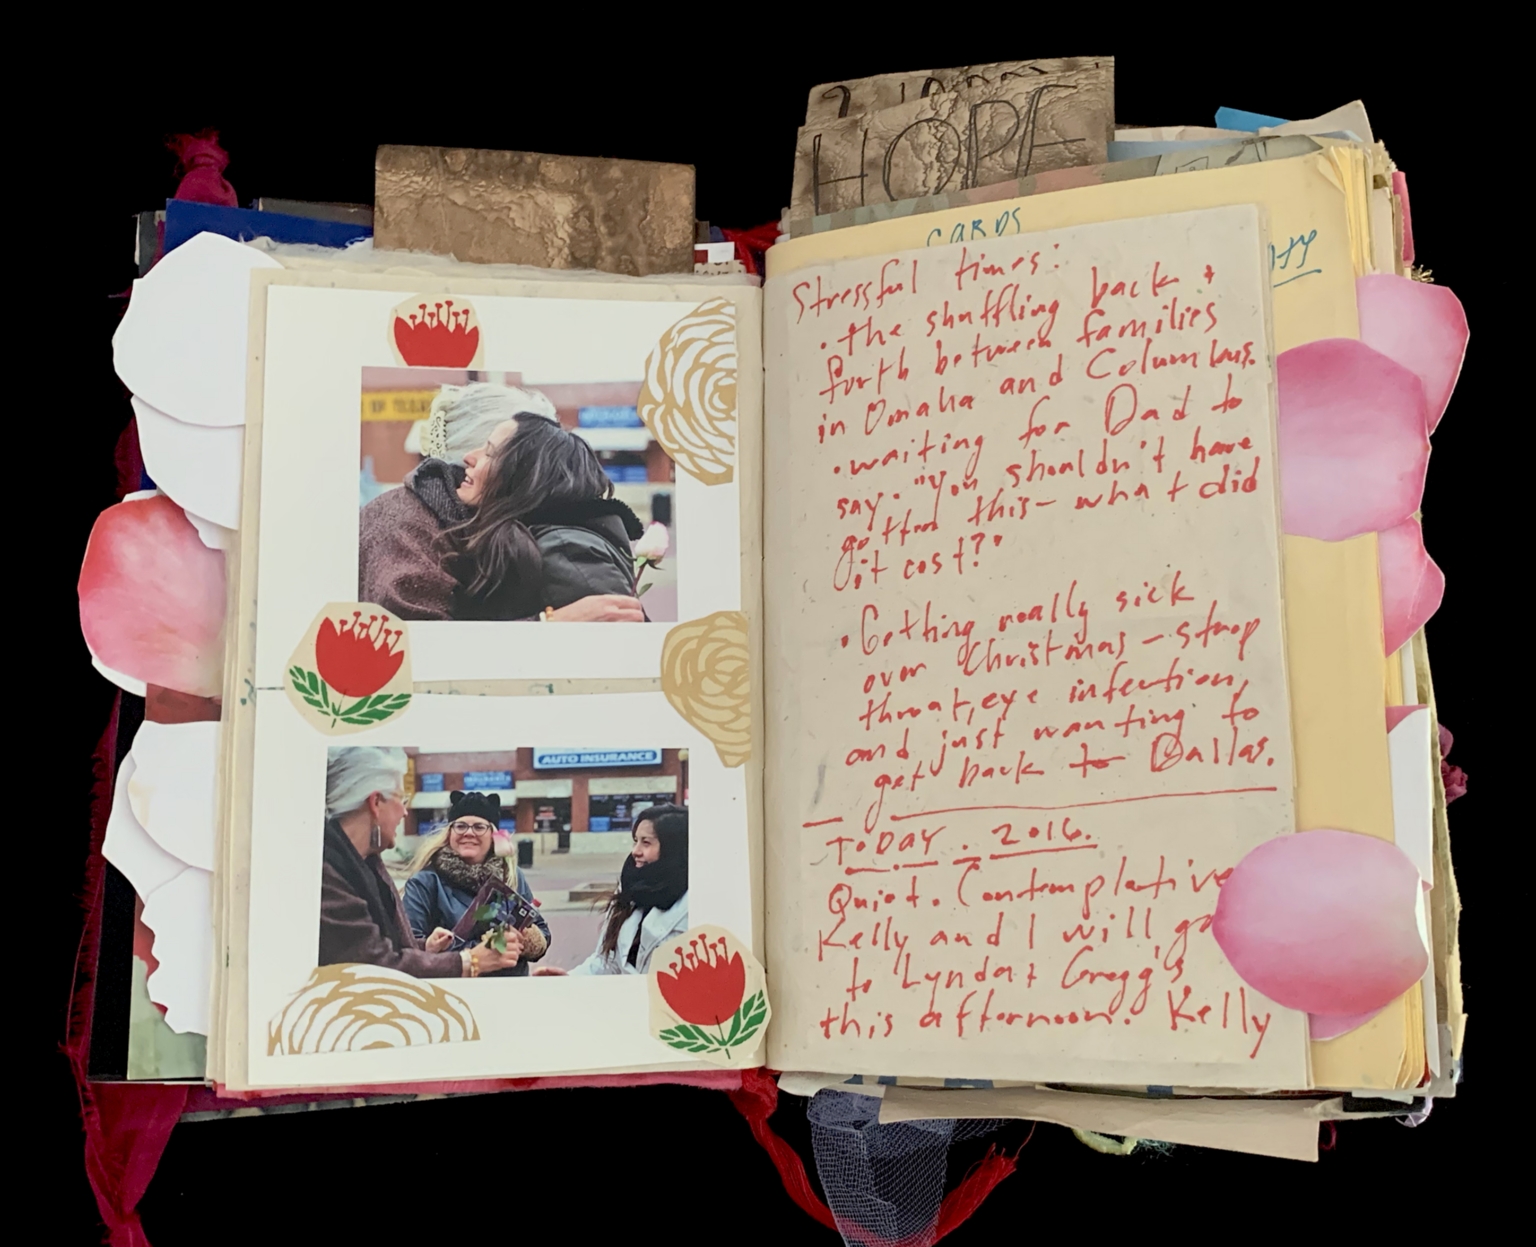 HOPE
CARDS
Stressful times:
• the shuffling back +
forth between families
in Omaha and Columbus.
• waiting for Dad to
say. "You shouldn't have
gotten this – what did
it cost?"
• Getting really sick
over Christmas – strep
throat, eye infection,
and just wanting to
get back to Dallas.
TODAY. 2016.
Quiet. Contemplative
Kelly and I will go
to Lynda + Gregg's
this afternoon. Kelly
AUTO INSURANCE